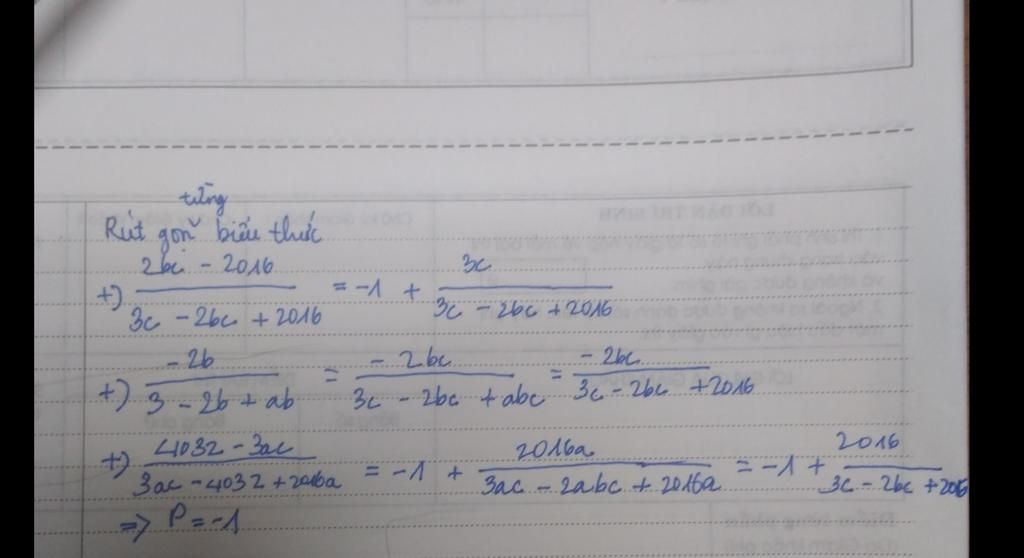 từng
Rút gọn biểu thức
+) (2bc - 2016)/(3c - 2bc + 2016) = -1 + 3c/(3c - 2bc + 2016)
+) (-2b)/(3 - 2b + ab) = (-2bc)/(3c - 2bc + abc) = (-2bc)/(3c - 2bc + 2016)
+) (4032 - 3ac)/(3ac - 4032 + 2016a) = -1 + 2016a/(3ac - 2abc + 2016a) = -1 + 2016/(3c - 2bc + 2016)
=> P = -1